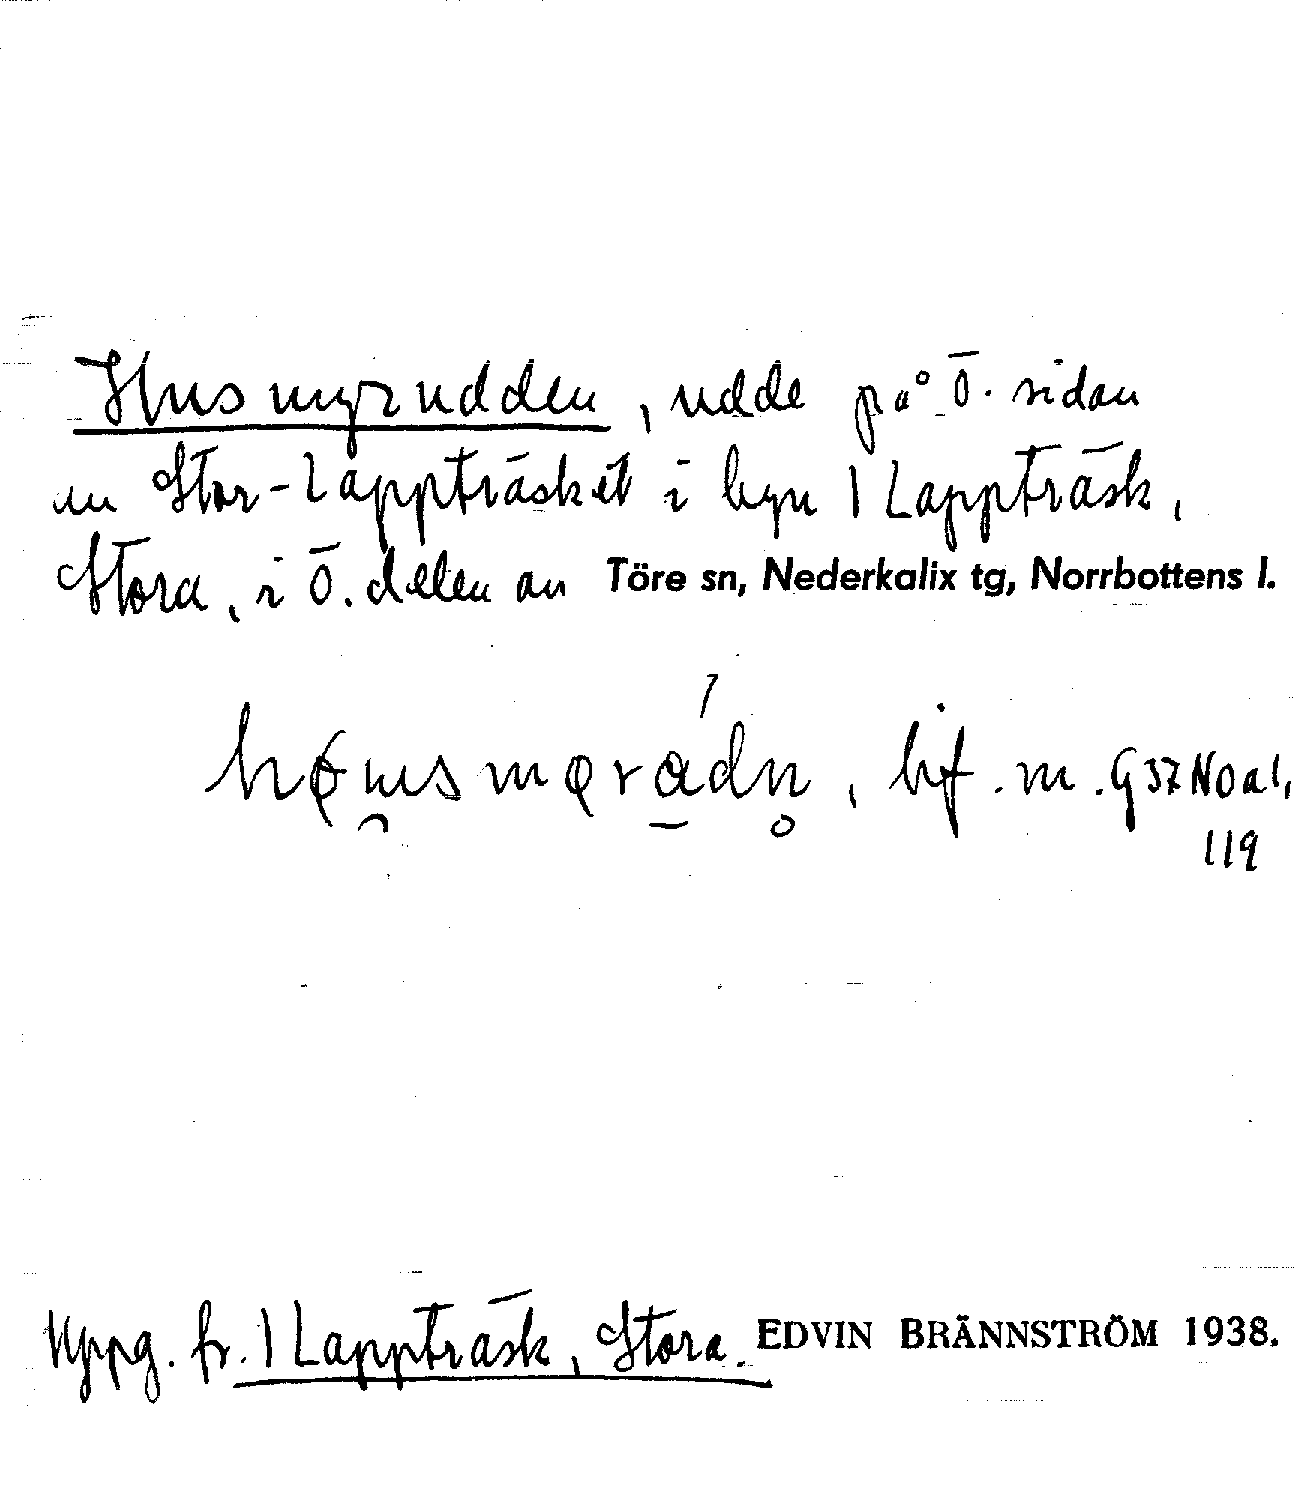 Husmyrudden, udde på Ö. sidan
av Stor-Lappträsket i byn 1 Lappträsk,
Stora, i Ö. delen av Töre sn, Nederkalix tg, Norrbottens l.
bf. m. G37 No al,
119
Uppg. fr. 1 Lappträsk, Stora. EDVIN BRÄNNSTRÖM 1938.